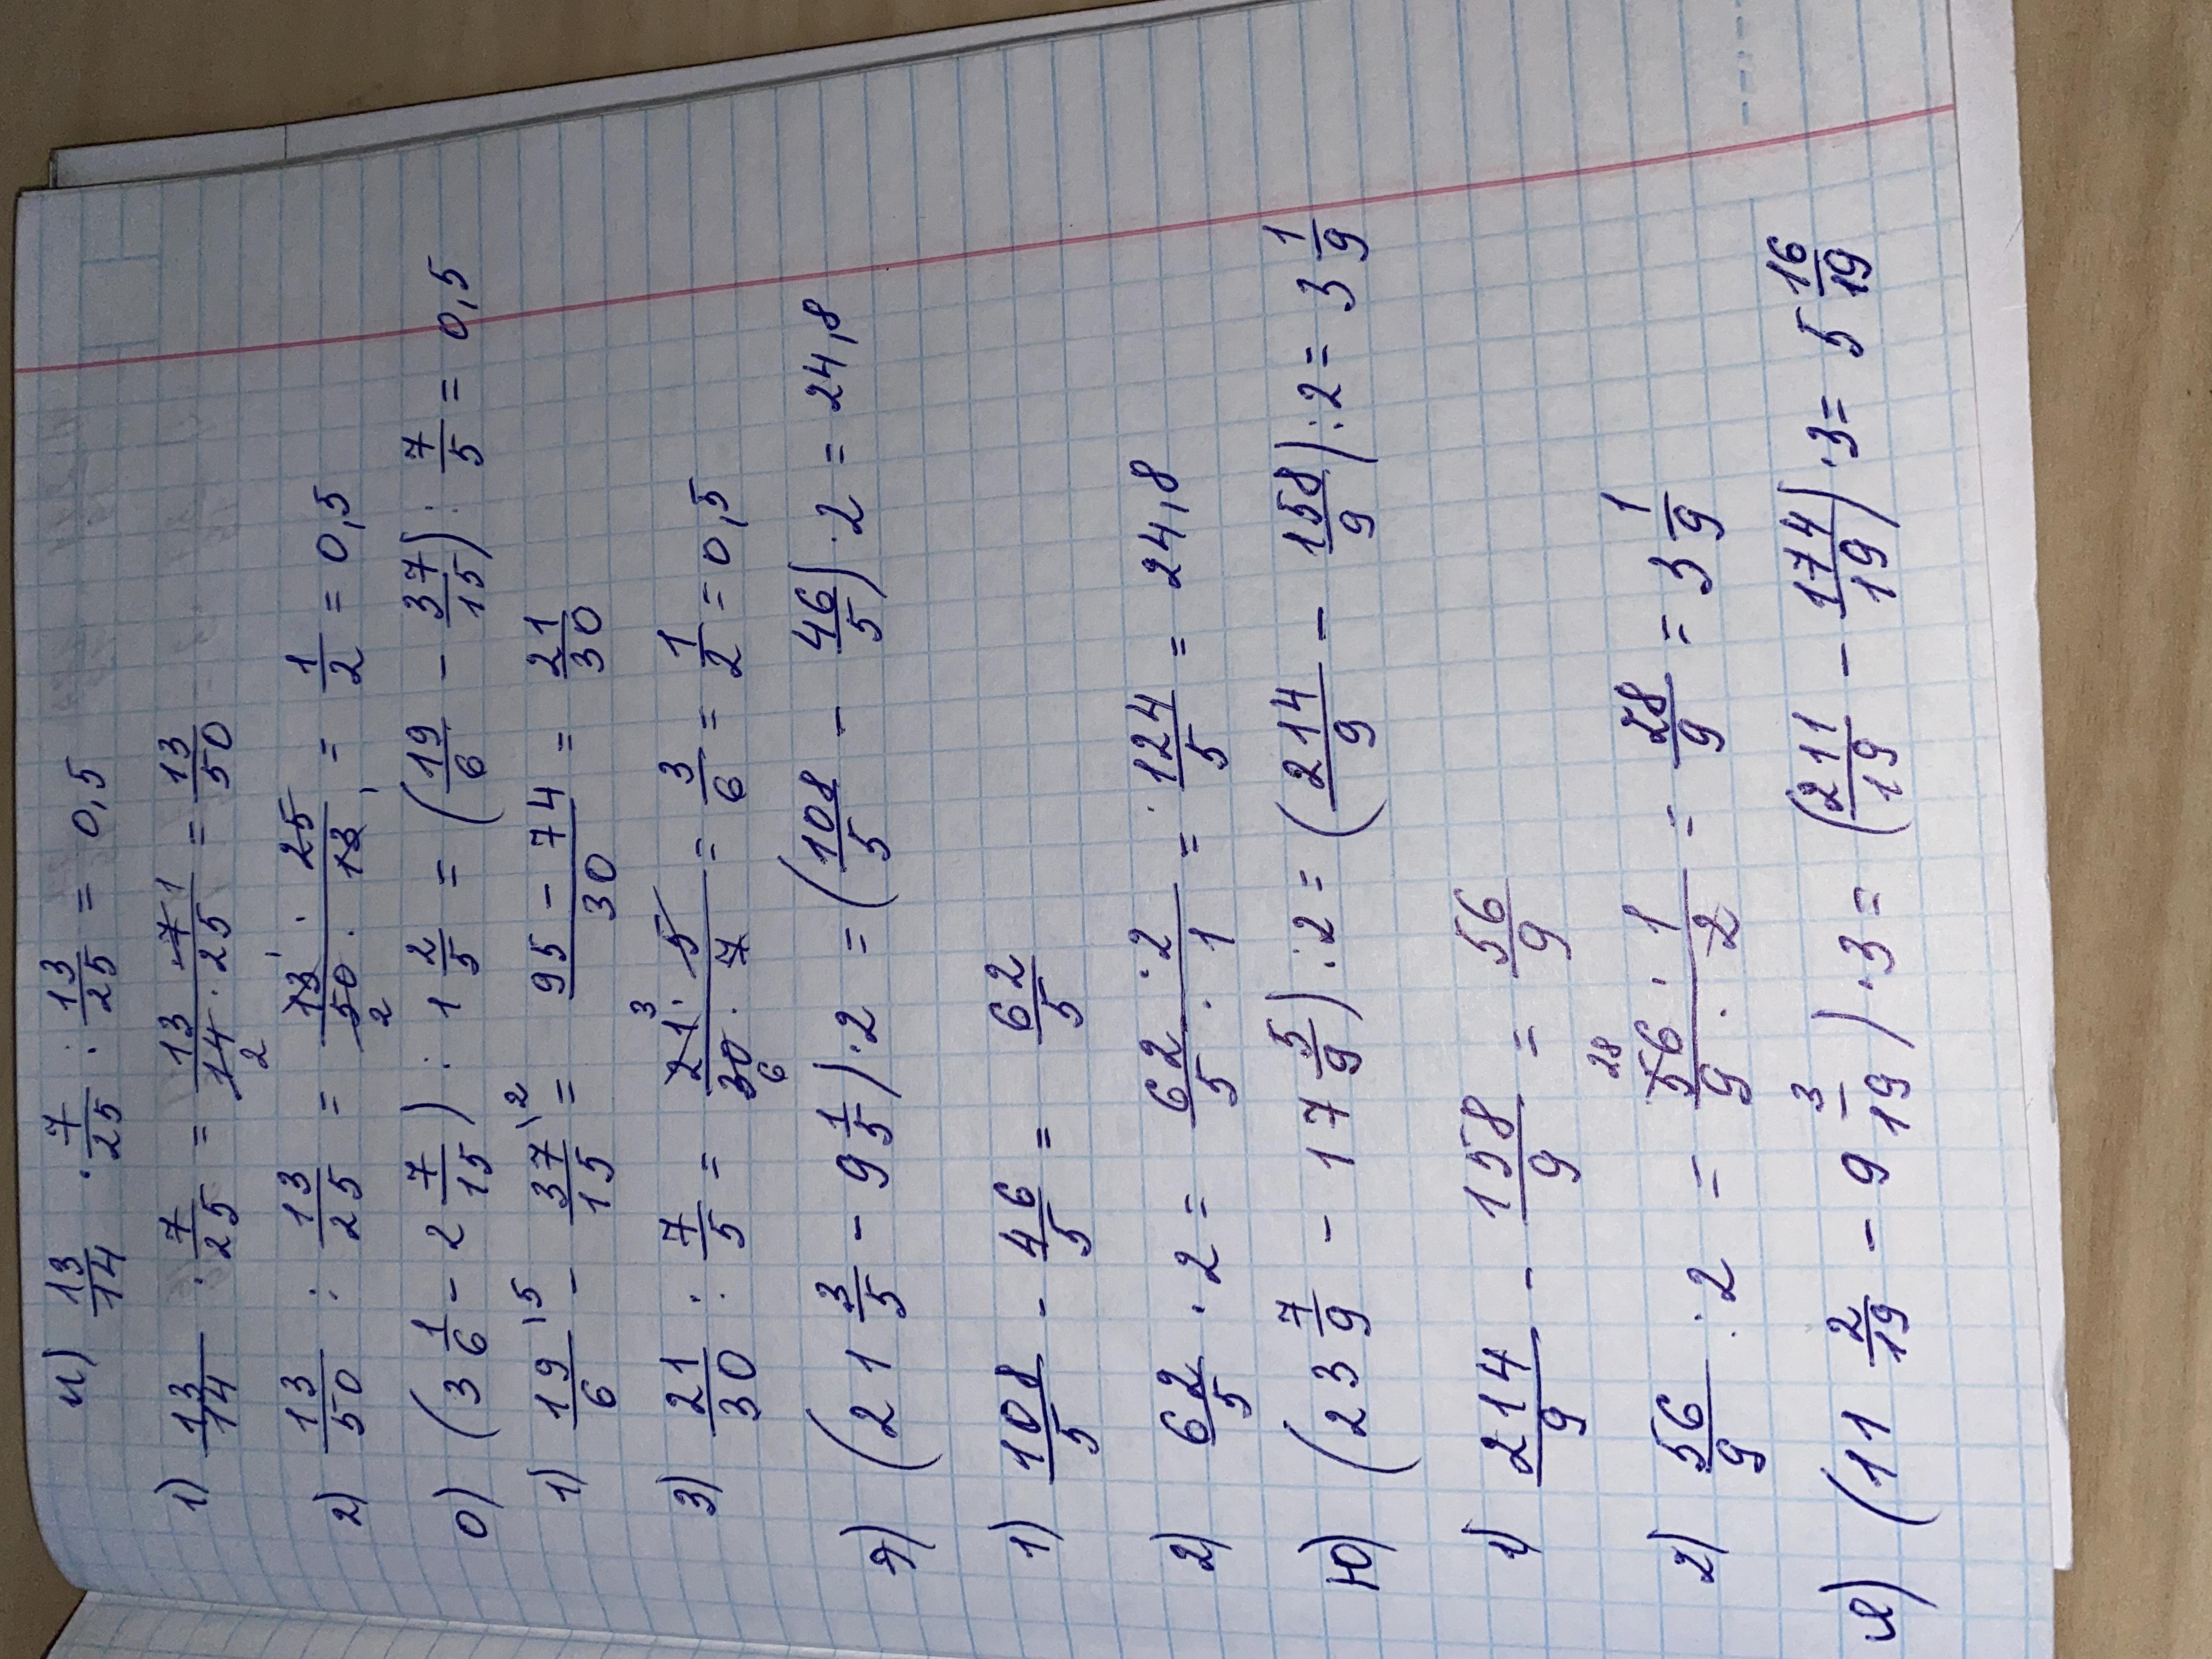 и) 13/14 · 7/25 : 13/25 = 0,5
1) 13/14 · 7/25 = 13 · 7 1/14 2 · 25 = 13/50
2) 13/50 : 13/25 = 13 1 · 25/50 2 · 13 1 = 1/2 = 0,5
о) (3 1/6 - 2 7/15) : 1 2/5 = (19/6 - 37/15) : 7/5 = 0,5
1) 19/6 \5 - 37/15 \2 = 95 - 74/30 = 21/30
3) 21/30 : 7/5 = 21 3 · 5/30 6 · 7 = 3/6 = 1/2 = 0,5
я) (21 3/5 - 9 1/5) · 2 = (108/5 - 46/5) · 2 = 24,8
1) 108/5 - 46/5 = 62/5
2) 62/5 · 2 = 62 · 2/5 · 1 = 124/5 = 24,8
ю) (23 7/9 - 17 5/9) : 2 = (214/9 - 158/9) : 2 = 3 1/9
1) 214/9 - 158/9 = 56/9
2) 56/9 : 2 = 56 28 · 1/9 · 2 = 28/9 = 3 1/9
(11 2/19 - 9 3/19) · 3 = (211/19 - 174/19) · 3 = 5 16/19